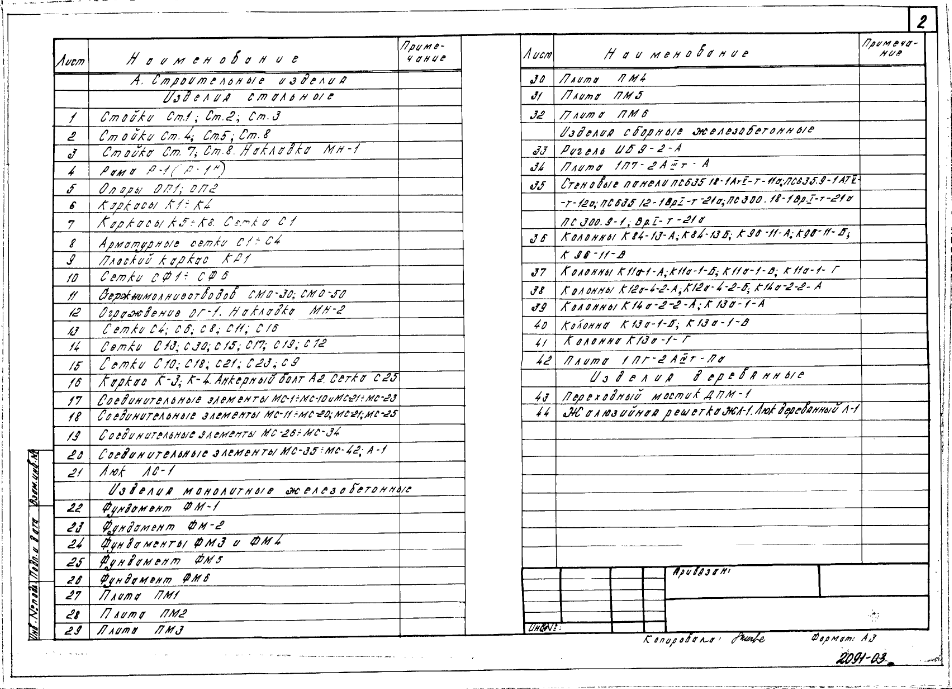 2
Лист Наименование Приме-
чание
А. Строительные изделия
Изделия стальные
1 Стойки Ст.1; Ст.2; Ст.3
2 Стойки Ст.4; Ст5; Ст.6
3 Стойка Ст.7; Ст.8. Накладка МН-1
4 Рама Р-1 (Р-1н)
5 Опоры ОП1; ОП2
6 Каркасы К1÷К4
7 Каркасы К5÷К6. Сетка С1
8 Арматурные сетки С1÷С4
9 Плоский каркас КР1
10 Сетки СФ1÷СФ6
11 Стержнимолниеотводов СМО-30; СМО-50
12 Ограждение ОГ-1. Накладка МН-2
13 Сетки С4; С6; С8; С11; С16
14 Сетки С13; С30; С15; С17; С19; С12
15 Сетки С10; С18; С21; С23; С9
16 Каркас К-3; К-4. Анкерный болт А2. Сетка С25
17 Соединительные элементы МС-1÷МС-10 и МС21÷МС-23
18 Соединительные элементы МС-11÷МС-20; МС21; МС-25
19 Соединительные элементы МС-26÷МС-34
20 Соединительные элементы МС-35÷МС-42; А-1
21 Люк ЛС-1
Изделия монолитные железобетонные
22 Фундамент ФМ-1
23 Фундамент ФМ-2
24 Фундаменты ФМ3 и ФМ4
25 Фундамент ФМ5
26 Фундамент ФМ6
27 Плита ПМ1
28 Плита ПМ2
29 Плита ПМ3
Лист Наименование Примеча-
ние
30 Плита ПМ4
31 Плита ПМ5
32 Плита ПМ6
Изделия сборные железобетонные
33 Ригель ИБ9-2-А
34 Плита 1П7-2АⅢт-А
35 Стеновые панели ПС635.18-1АтⅤ-т-11а; ПС635.9-1АТⅤ-
-т-12а; ПС635.12-1ВрⅠ-т-21а; ПС300.18-1ВрⅠ-т-21а
ПС300.9-1; ВрⅠ-т-21а
36 Колонны К84-13-А; К84-13Б; К98-11-А; К98-11-Б;
К98-11-В
37 Колонны К11а-1-А; К11а-1-Б; К11а-1-В; К11а-1-Г
38 Колонны К12а-4-2-А; К12а-4-2-Б; К14а-2-2-А
39 Колонны К14а-2-2-А; К13а-1-А
40 Колонна К13а-1-Б; К13а-1-В
41 Колонна К13а-1-Г
42 Плита 1ПГ-2АⅢт-Па
Изделия деревянные
43 Переходный мостик ДПМ-1
44 Жалюзийная решетка ЖЛ-1. Люк деревянный Л-1
Привязан:
Инв№:
Инв.№подл Подп. и дата Взам.инв.№
Копировала: Формат: А3
2091-03